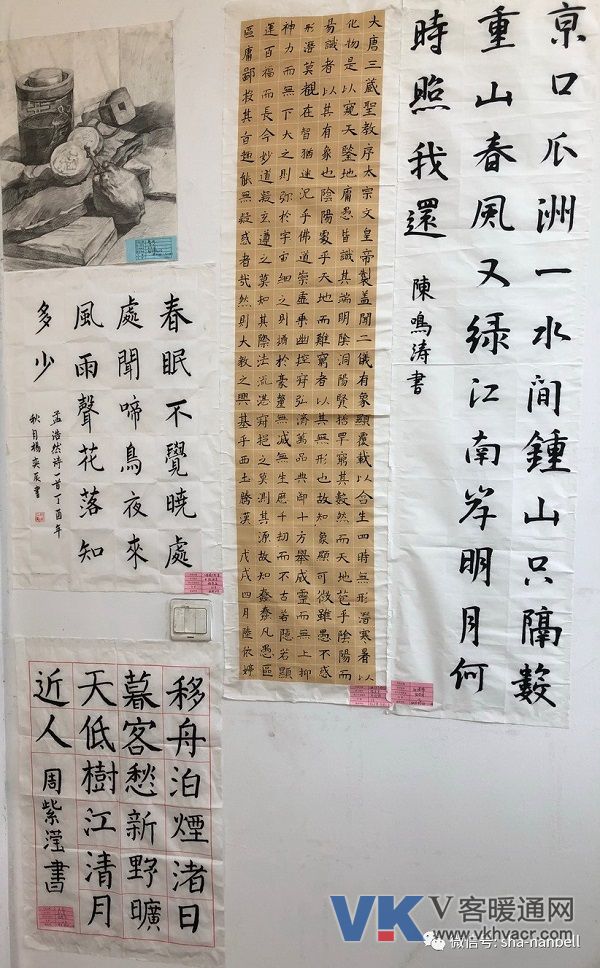 京口瓜洲一水間鍾山只隔數
重山春風又绿江南岸明月何
時照我還 陳鳴涛書
大唐三蔵聖教序太宗文皇帝製盖聞二儀有象顯覆載以含生四時無形潛寒暑以
化物是以窺天鑒地庸愚皆識其端明陰洞陽賢哲罕窮其數然而天地苞乎陰陽而
易識者以其有象也陰陽處乎天地而難窮者以其無形也故知象顯可徵雖愚不惑
形潛莫覩在智猶迷况乎佛道崇虛乘幽控寂弘濟萬品典御十方舉威靈而無上抑
神力而無下大之則弥於宇宙細之則攝於豪釐無滅無生歷千劫而不古若隱若顯
運百福而長今妙道凝玄遵之莫知其際法流湛寂挹之莫測其源故知蠢蠢凡愚區
區庸鄙投其旨趣能無疑惑者哉然則大教之興基乎西土騰漢 戊戌四月陸依婷
春眠不覺曉處
處聞啼鳥夜來
風雨聲花落知
多少
孟浩然诗一首丁酉年
秋月楊奕辰書
移舟泊煙渚日
暮客愁新野曠
天低樹江清月
近人 周紫滢書
VK V客暖通网
www.vkhvacr.com
微信号: sha-hanbell